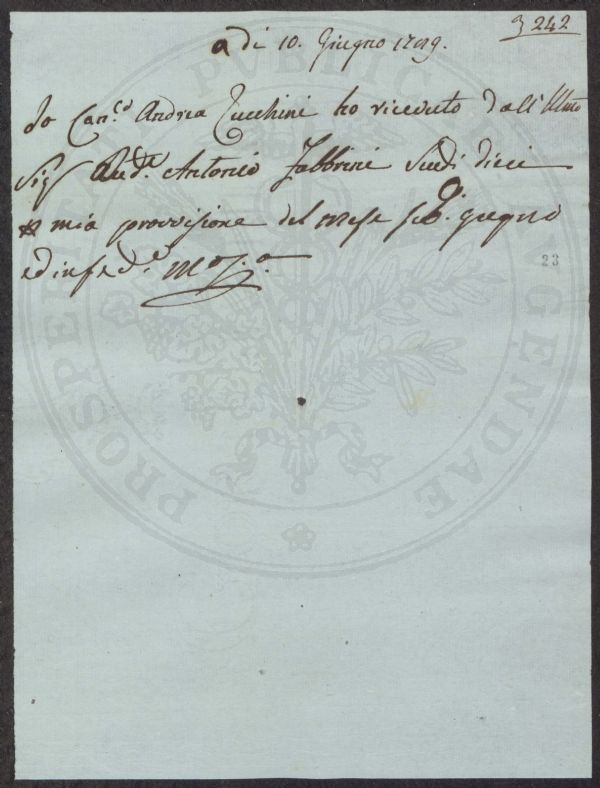 3 242
a di 10. Giugno 1789.
Io Can.co Andrea Zucchini ho ricevuto dall' Illmo
Sig Aud.e Antonio Fabbrini Scudi dieci
mia provvisione del mese giugno
ed in fede
23
PROSPERITATI PUBLICAE AUGENDAE